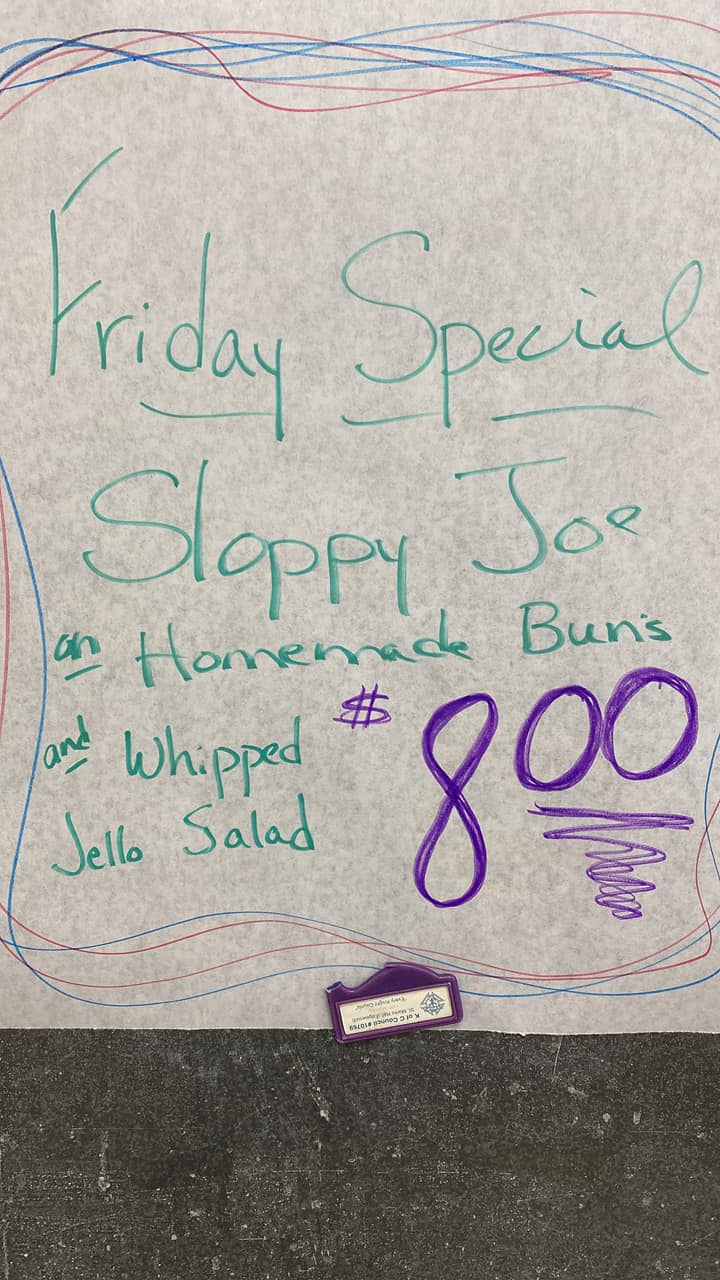 Friday Special
Sloppy Joe
on Homemade Bun's
and Whipped
Jello Salad
$8.00
K of C Council #10769
St. Marks Hall (Edgewood)
"Every Knight Counts"